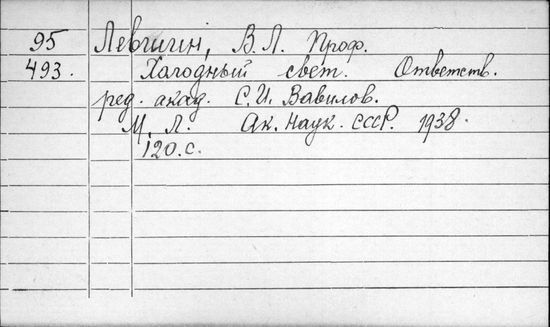 95 Левшин, В.Л. Проф.
493. Холодный свет. Ответств.
ред. акад. С.И. Вавилов.
М, Л. Ак. Наук. СССР. 1938.
120.с.